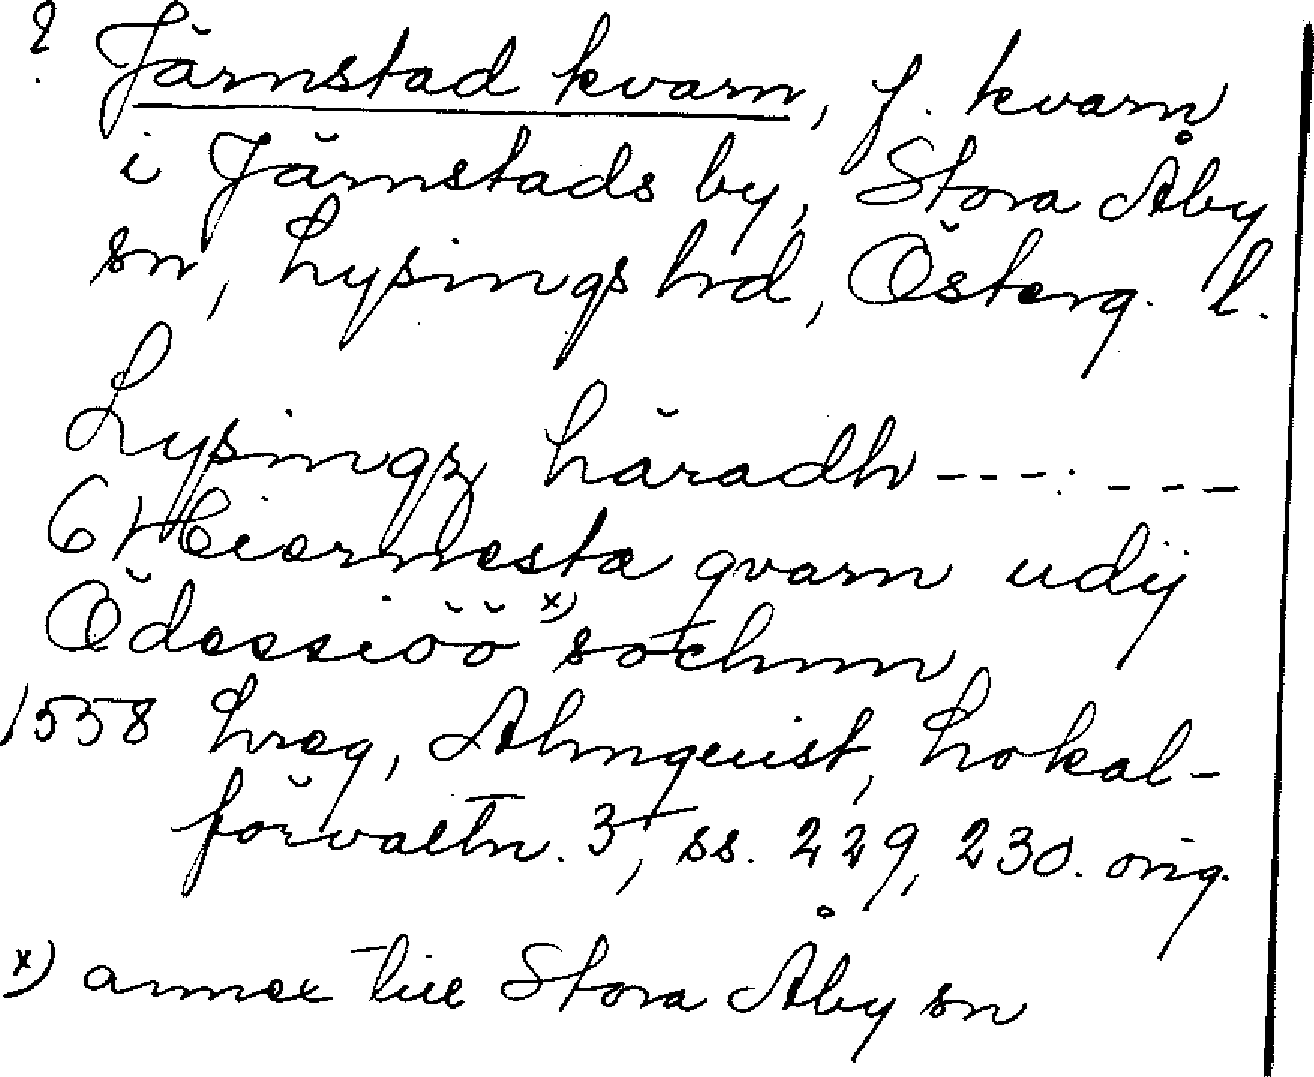 ? Järnstad kvarn, f. kvarn
i Järnstads by, Stora Åby
sn, Lysings hrd, Österg. l.
Lysingz häradh --- : ---
6) Hiernesta qvarn udij
Ödessiöö x) sochnn
1558 hreg, Almquist, Lokal-
förvaltn. 3, ss. 229, 230. orig.
x) annex till Stora Åby sn